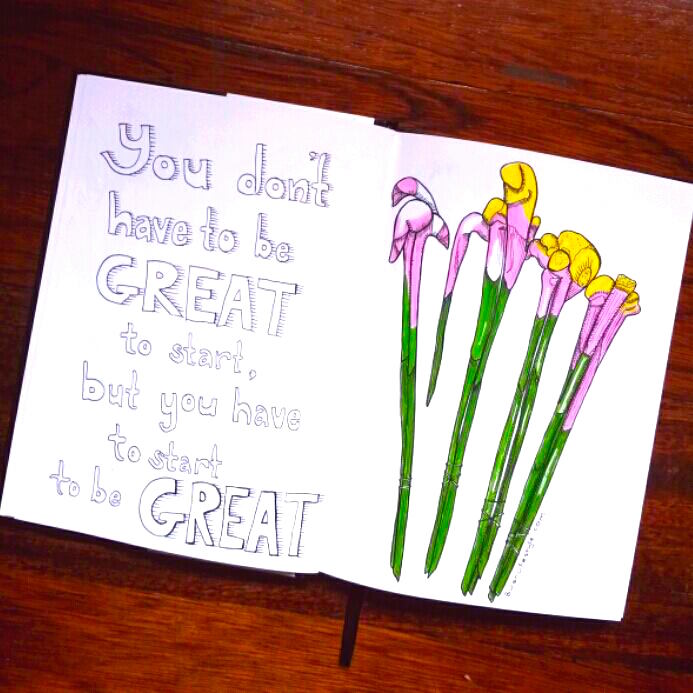 You don't
have to be
GREAT
to start,
but you have
to start
to be GREAT